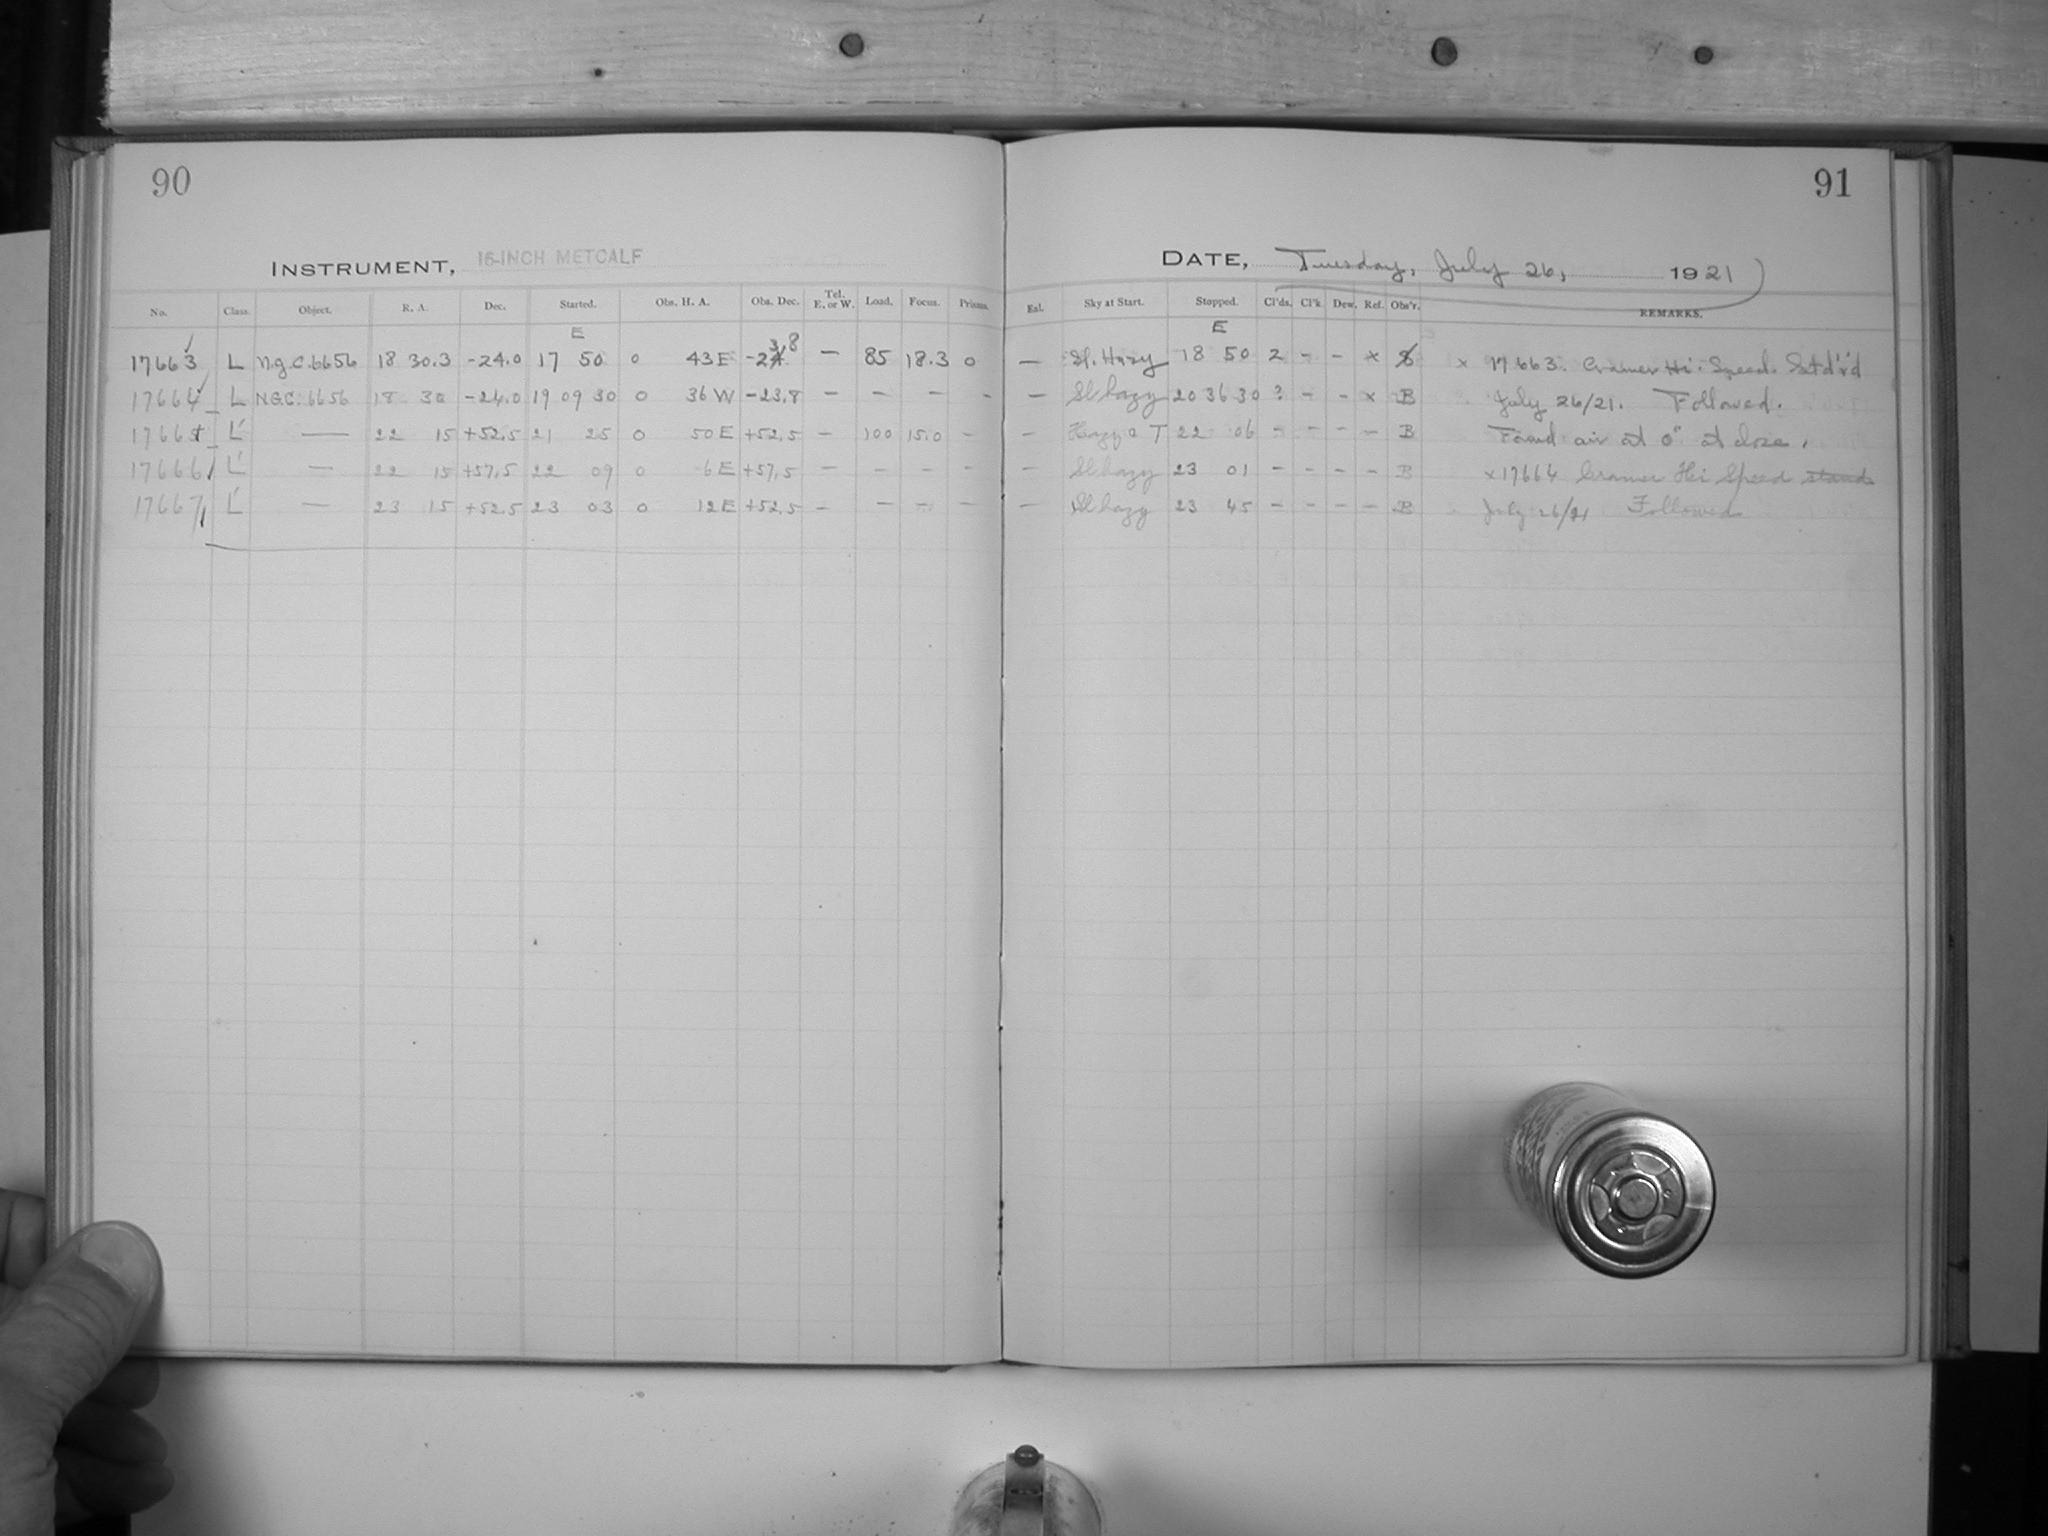 90
INSTRUMENT, 16-INCH METCALF
No. Class. Object. R. A. Dec. Started. Obs. H. A. Obs. Dec. Tel. E. or W. Load. Focus. Prisms.
E
17663 L N.g.C.6656 18 30.3 -24.0 17 50 0 43 E -23.8 — 85 18.3 0
17664 L N.G.C. 6656 18 30 -24.0 19 09 30 0 36 W -23.8 — — — —
17665 L — 22 15 +52.5 21 25 0 50 E +52.5 — 100 15.0 —
17666 L — 22 15 +57.5 22 09 0 6 E +57.5 — — — —
17667 L — 23 15 +52.5 23 03 0 12 E +52.5 — — — —
91
DATE, Tuesday, July 26, 1921
Eal. Sky at Start. Stopped. Cl'ds. Cl'k. Dew. Ref. Obs'r. REMARKS.
E
— Sl. Hazy 18 50 2 - - x x 17663. Cramer Hi. Speed. St'd'r'd
— Sl hazy 20 36 30 ? - - x B July 26/21. Followed.
— Hazy & T 22 06 - - - - B Found air at 0" at close.
— Sl hazy 23 01 - - - - B x17664 Cramer Hi Speed stand
— Sl hazy 23 45 - - - - B July 26/21 Followed